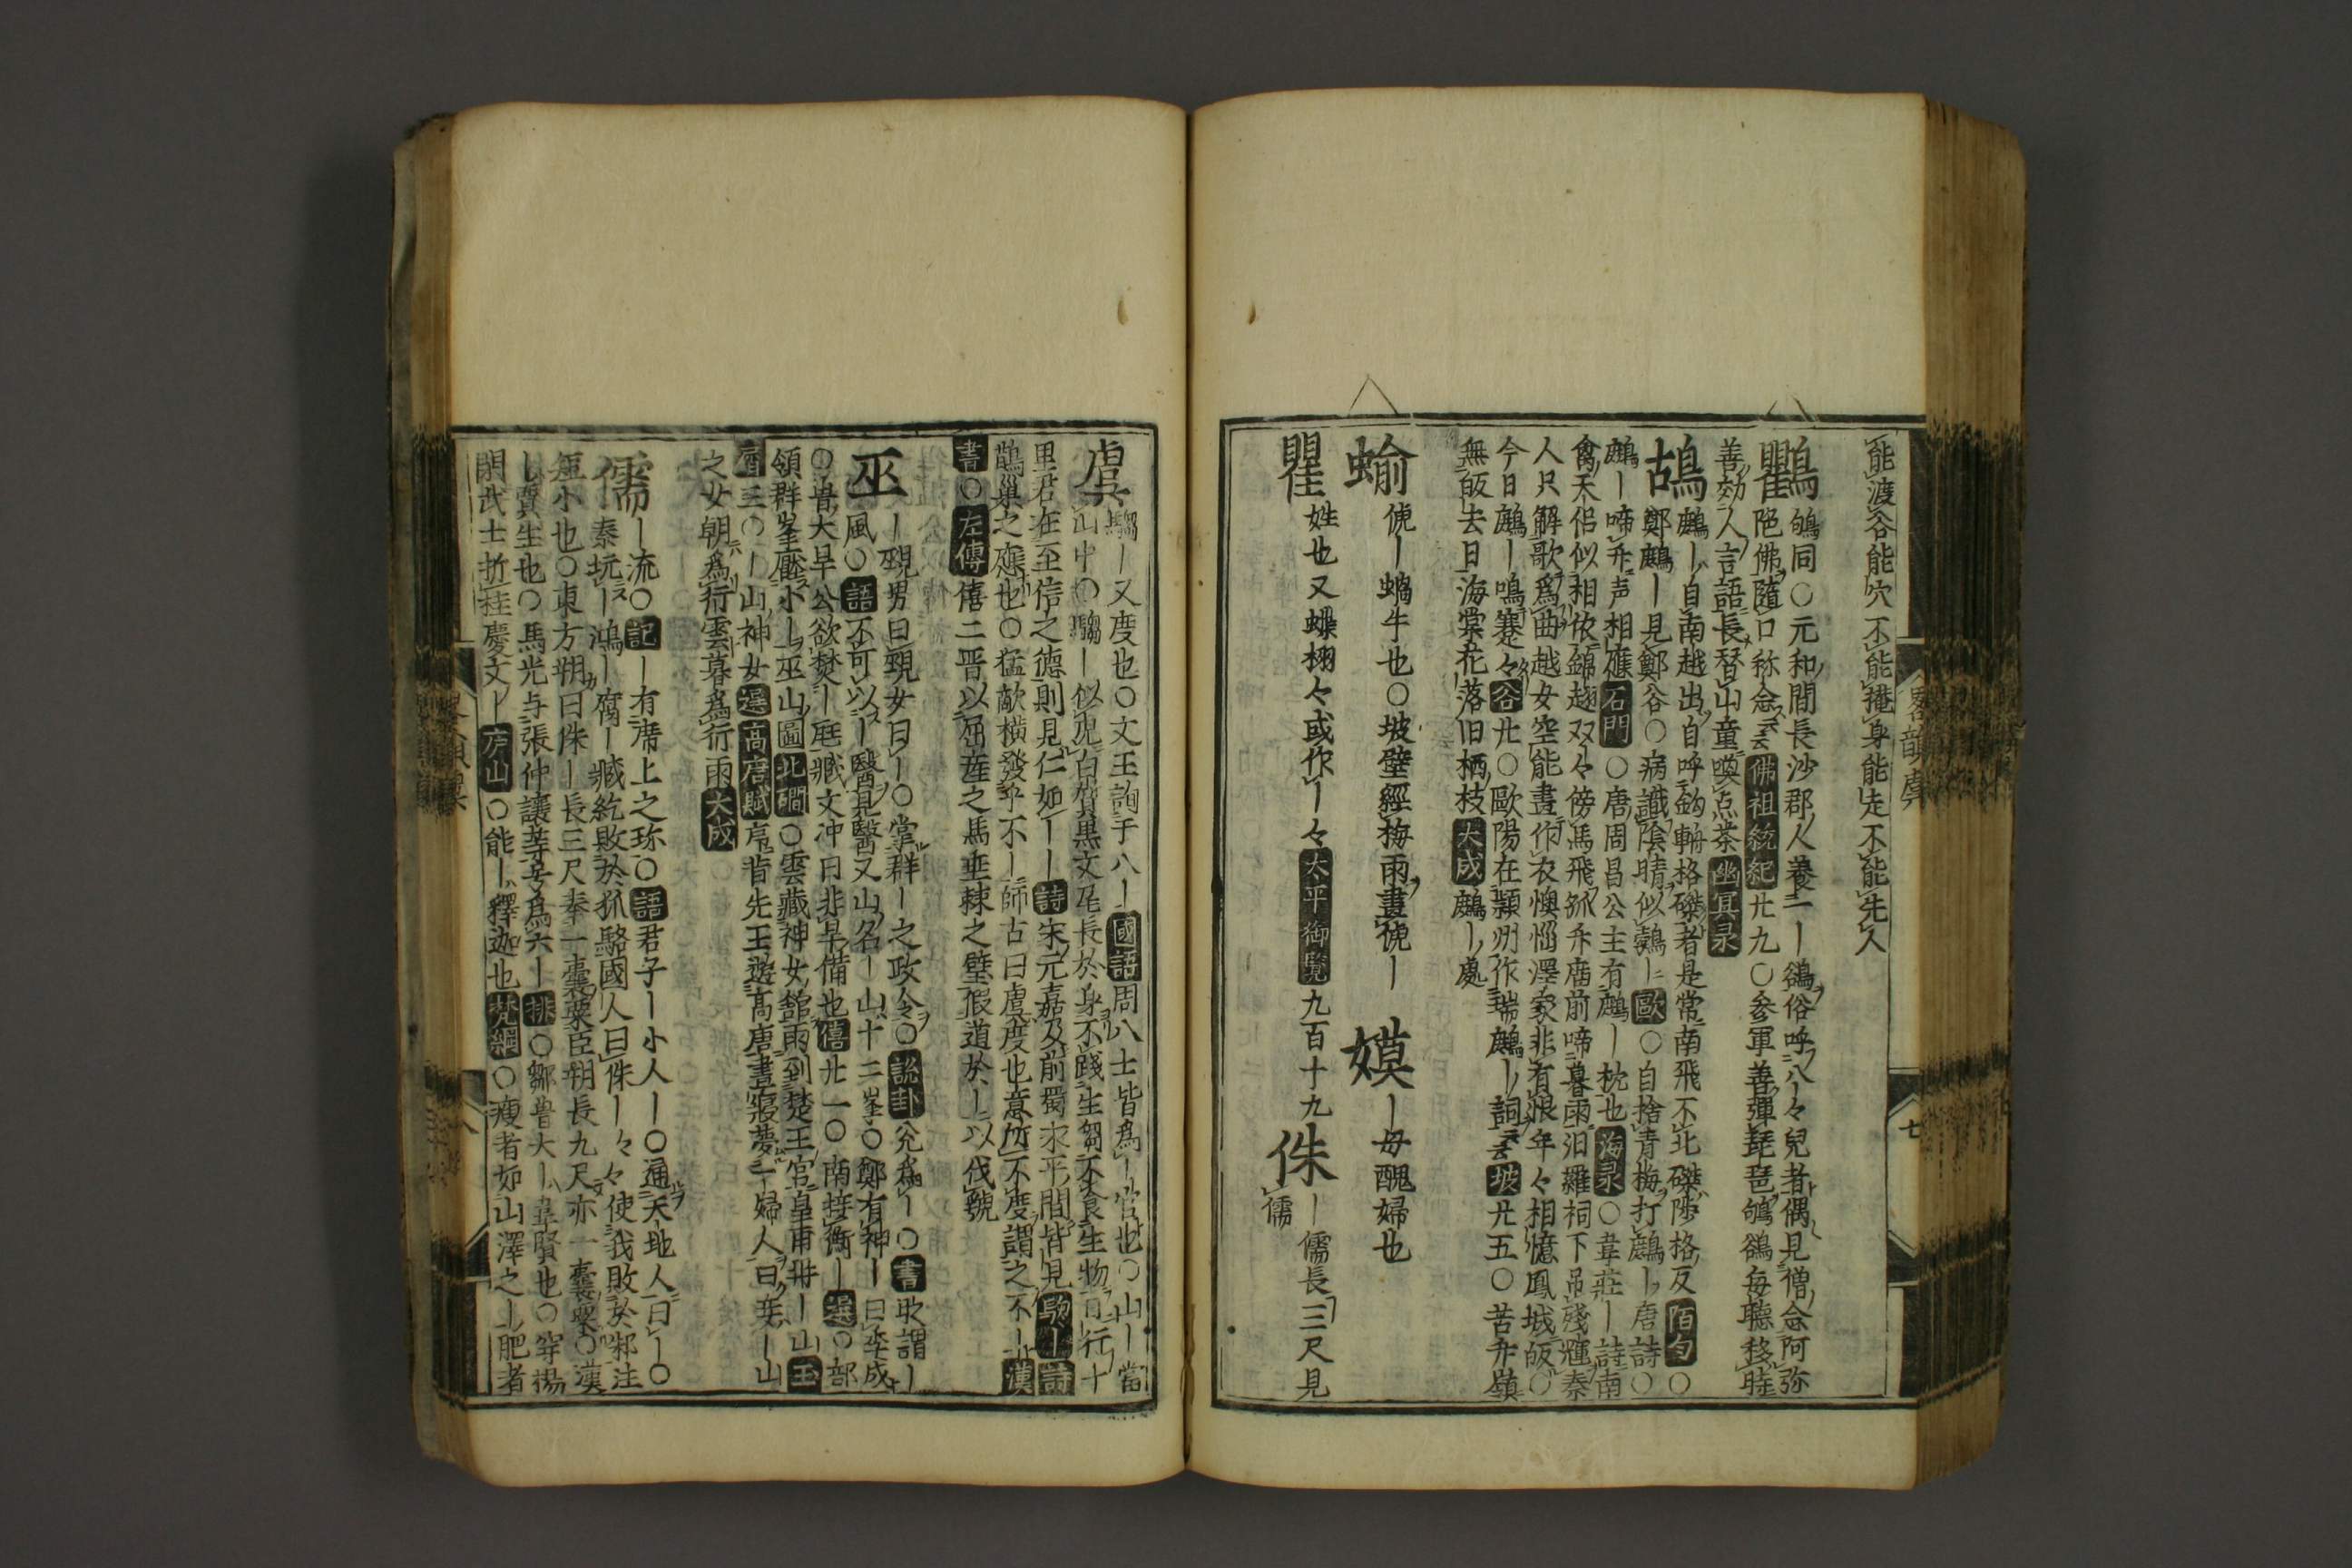 能渡谷能穴不能掩身能走不能先人
鸜 鴝同○元和間長沙郡人養一ー鵒俗呼八々兒者偶見僧念阿弥
陀佛隨口称念云云佛祖統紀廿九○参軍善彈琵琶鴝鵒毎聽移時
善効人言語長替山童喚点茶幽冥录
鴣 鷓ー自南越出自呼鈎輈格磔者是常南飛不北磔陟格反陌勻○
鄭鷓ー見鄭谷○病識陰晴似鷓ー歐○自捨青梅打鷓ー唐詩○
鷓ー啼升声相應石門○唐周昌公主有鷓ー枕也海录○韋莊ー詩南
禽天侶似相依錦翅双々傍馬飛孤庙前啼暮雨汨羅祠下吊殘暉秦
人只解歌爲曲越女空能畫作衣懊惱澤家非有恨年々相憶鳳城皈○
今日鷓ー鳴蹇々谷廿○歐陽在潁州作瑞鷓ー詞云坡廿五○苦升嶺
無皈去日海棠花落旧栖枝大成鷓ー處
蝓 㾱ー蝸牛也○坡壁經梅雨畫ー 嫫 ー母醜婦也
瞿 姓也又蝶栩々或作ー々太平御覧九百十九 侏 ー儒長三尺見儒
畧韻虞 七
虞 騶ー又度也○文王詢于八ー國語周八士皆爲ー官也○山ー當
山中○騶ー似虎白質黒文尾長於身不踐生芻不食生物而行十
里君在至信之德則見仁如ーー詩宋元嘉及前蜀求平間皆見騶ー詩
鵲巢之應也○猛敵横發乎不ー師古曰虞度也意所不度謂之不ー漢
書○左傳僖二晋以屈產之馬垂棘之璧假道於ー以伐虢
巫 ー覡男曰覡女曰ー○掌群ー之政令○説卦兌爲ー○書敢謂ー
風○語不可以ー醫見醫又山名ー山十二峯○鄭有神ー曰季咸
○昔大旱公欲焚ー尫臧文冲曰非旱備也僖廿一○南接衡ー選○部
領群峯壓小ー巫山圖北磵○雲藏神女舘雨到楚王宮皇甫冊ー山玉
屑三○ー山神女選高唐賦序昔先王遊高唐晝寢夢一婦人曰妾ー山
之女朝爲行雲暮爲行雨大成
儒 ー流○記ー有席上之珎○語君子ー小人ー○通天地人曰ー○
秦坑ー鴻ー腐ー臧紇敗於狐駘國人曰侏ー々々使我敗於邾注
短小也○東方朔曰侏ー長三尺奉一囊粟臣朔長九尺亦一囊粟○漢
ー賈生也○馬光与張仲讓等妄爲六ー排○鄒魯大ー韋賢也○穿楊
閉武士折桂慶文ー庐山○能ー釋迦也梵網○瘦者如山澤之ー肥者